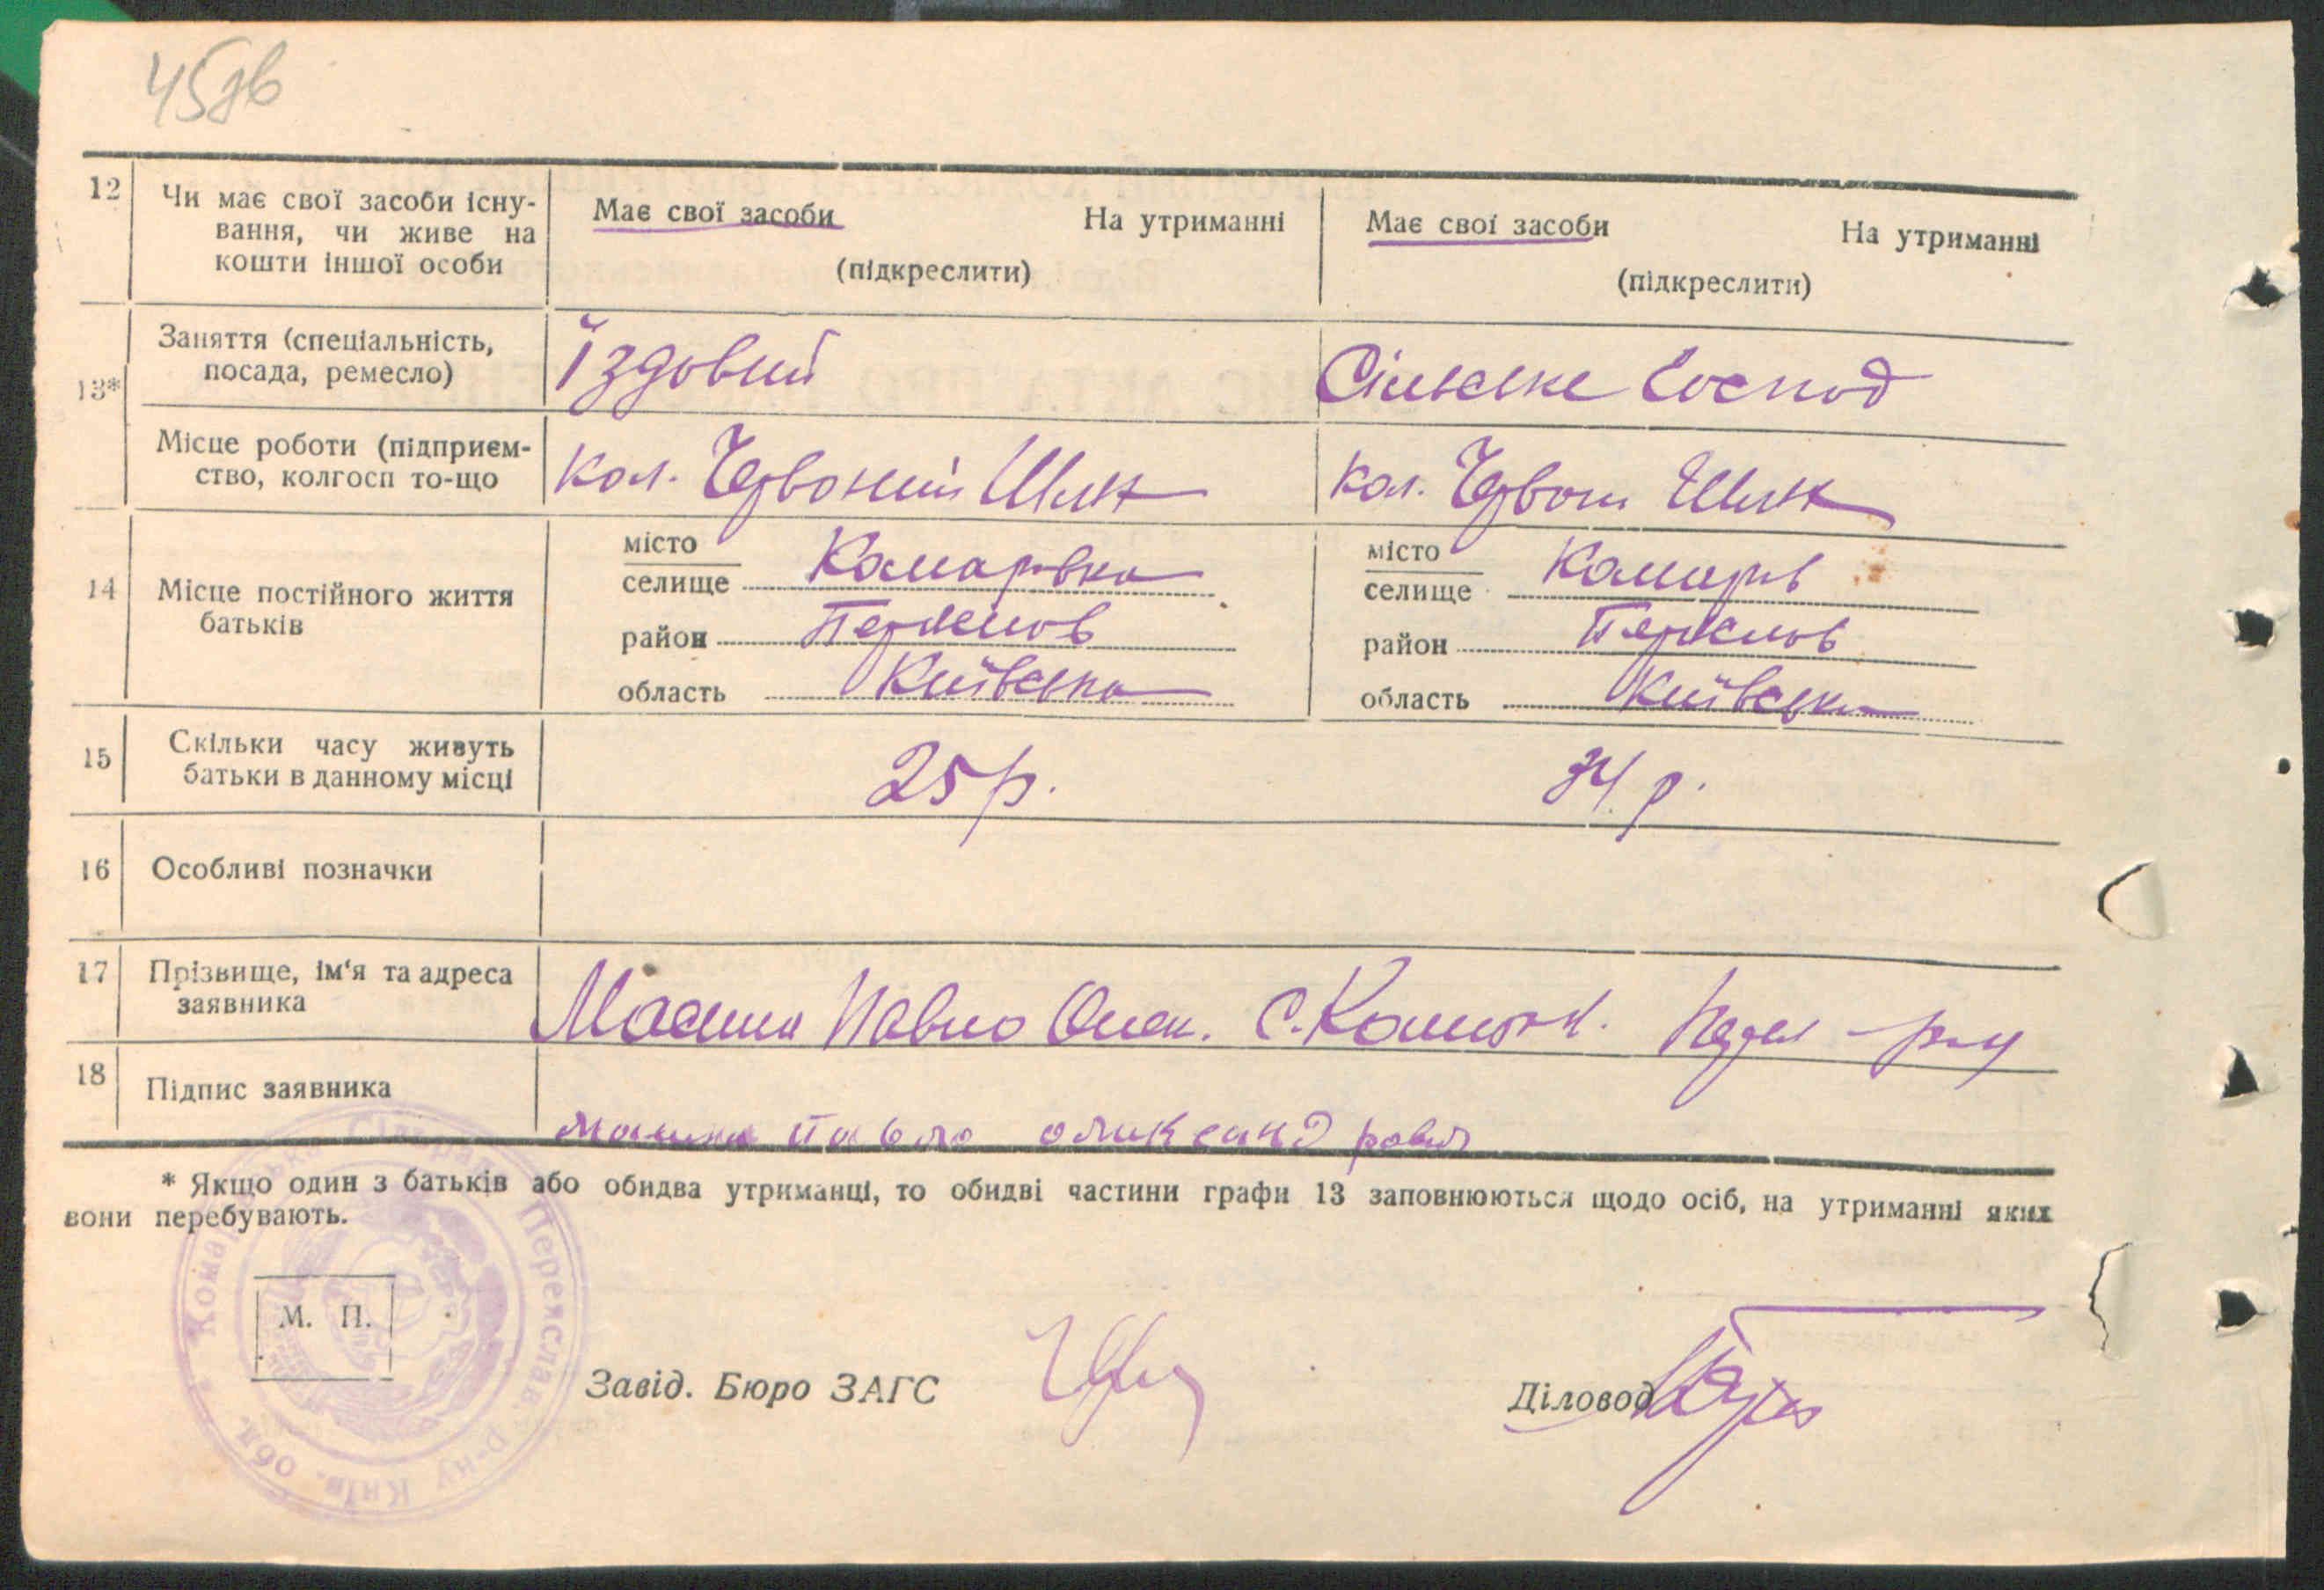 45зв
12 Чи має свої засоби існу-
вання, чи живе на
кошти іншої особи
Має свої засоби На утриманні
(підкреслити)
Має свої засоби На утриманні
(підкреслити)
13*
Заняття (спеціальність,
посада, ремесло)
Їздовий
Сільське Господ
Місце роботи (підприєм-
ство, колгосп то-що
Кол. Червоний Шлях
Кол. Червон Шлях
14 Місце постійного життя
батьків
місто
селище Комарівка
район
область Київська
місто
селище Комарів
район
область Київська
15 Скільки часу живуть
батьки в данному місці
25 р.
34 р.
16 Особливі позначки
17 Прізвище, ім'я та адреса
заявника
Павло Олек. с.
18 Підпис заявника
павло оликсандрович
* Якщо один з батьків або обидва утриманці, то обидві частини графи 13 заповнюються щодо осіб, на утриманні яких
вони перебувають.
Сільрада Переяслав. р-ну Київ. обл.
М. П.
Завід. Бюро ЗАГС
Діловод